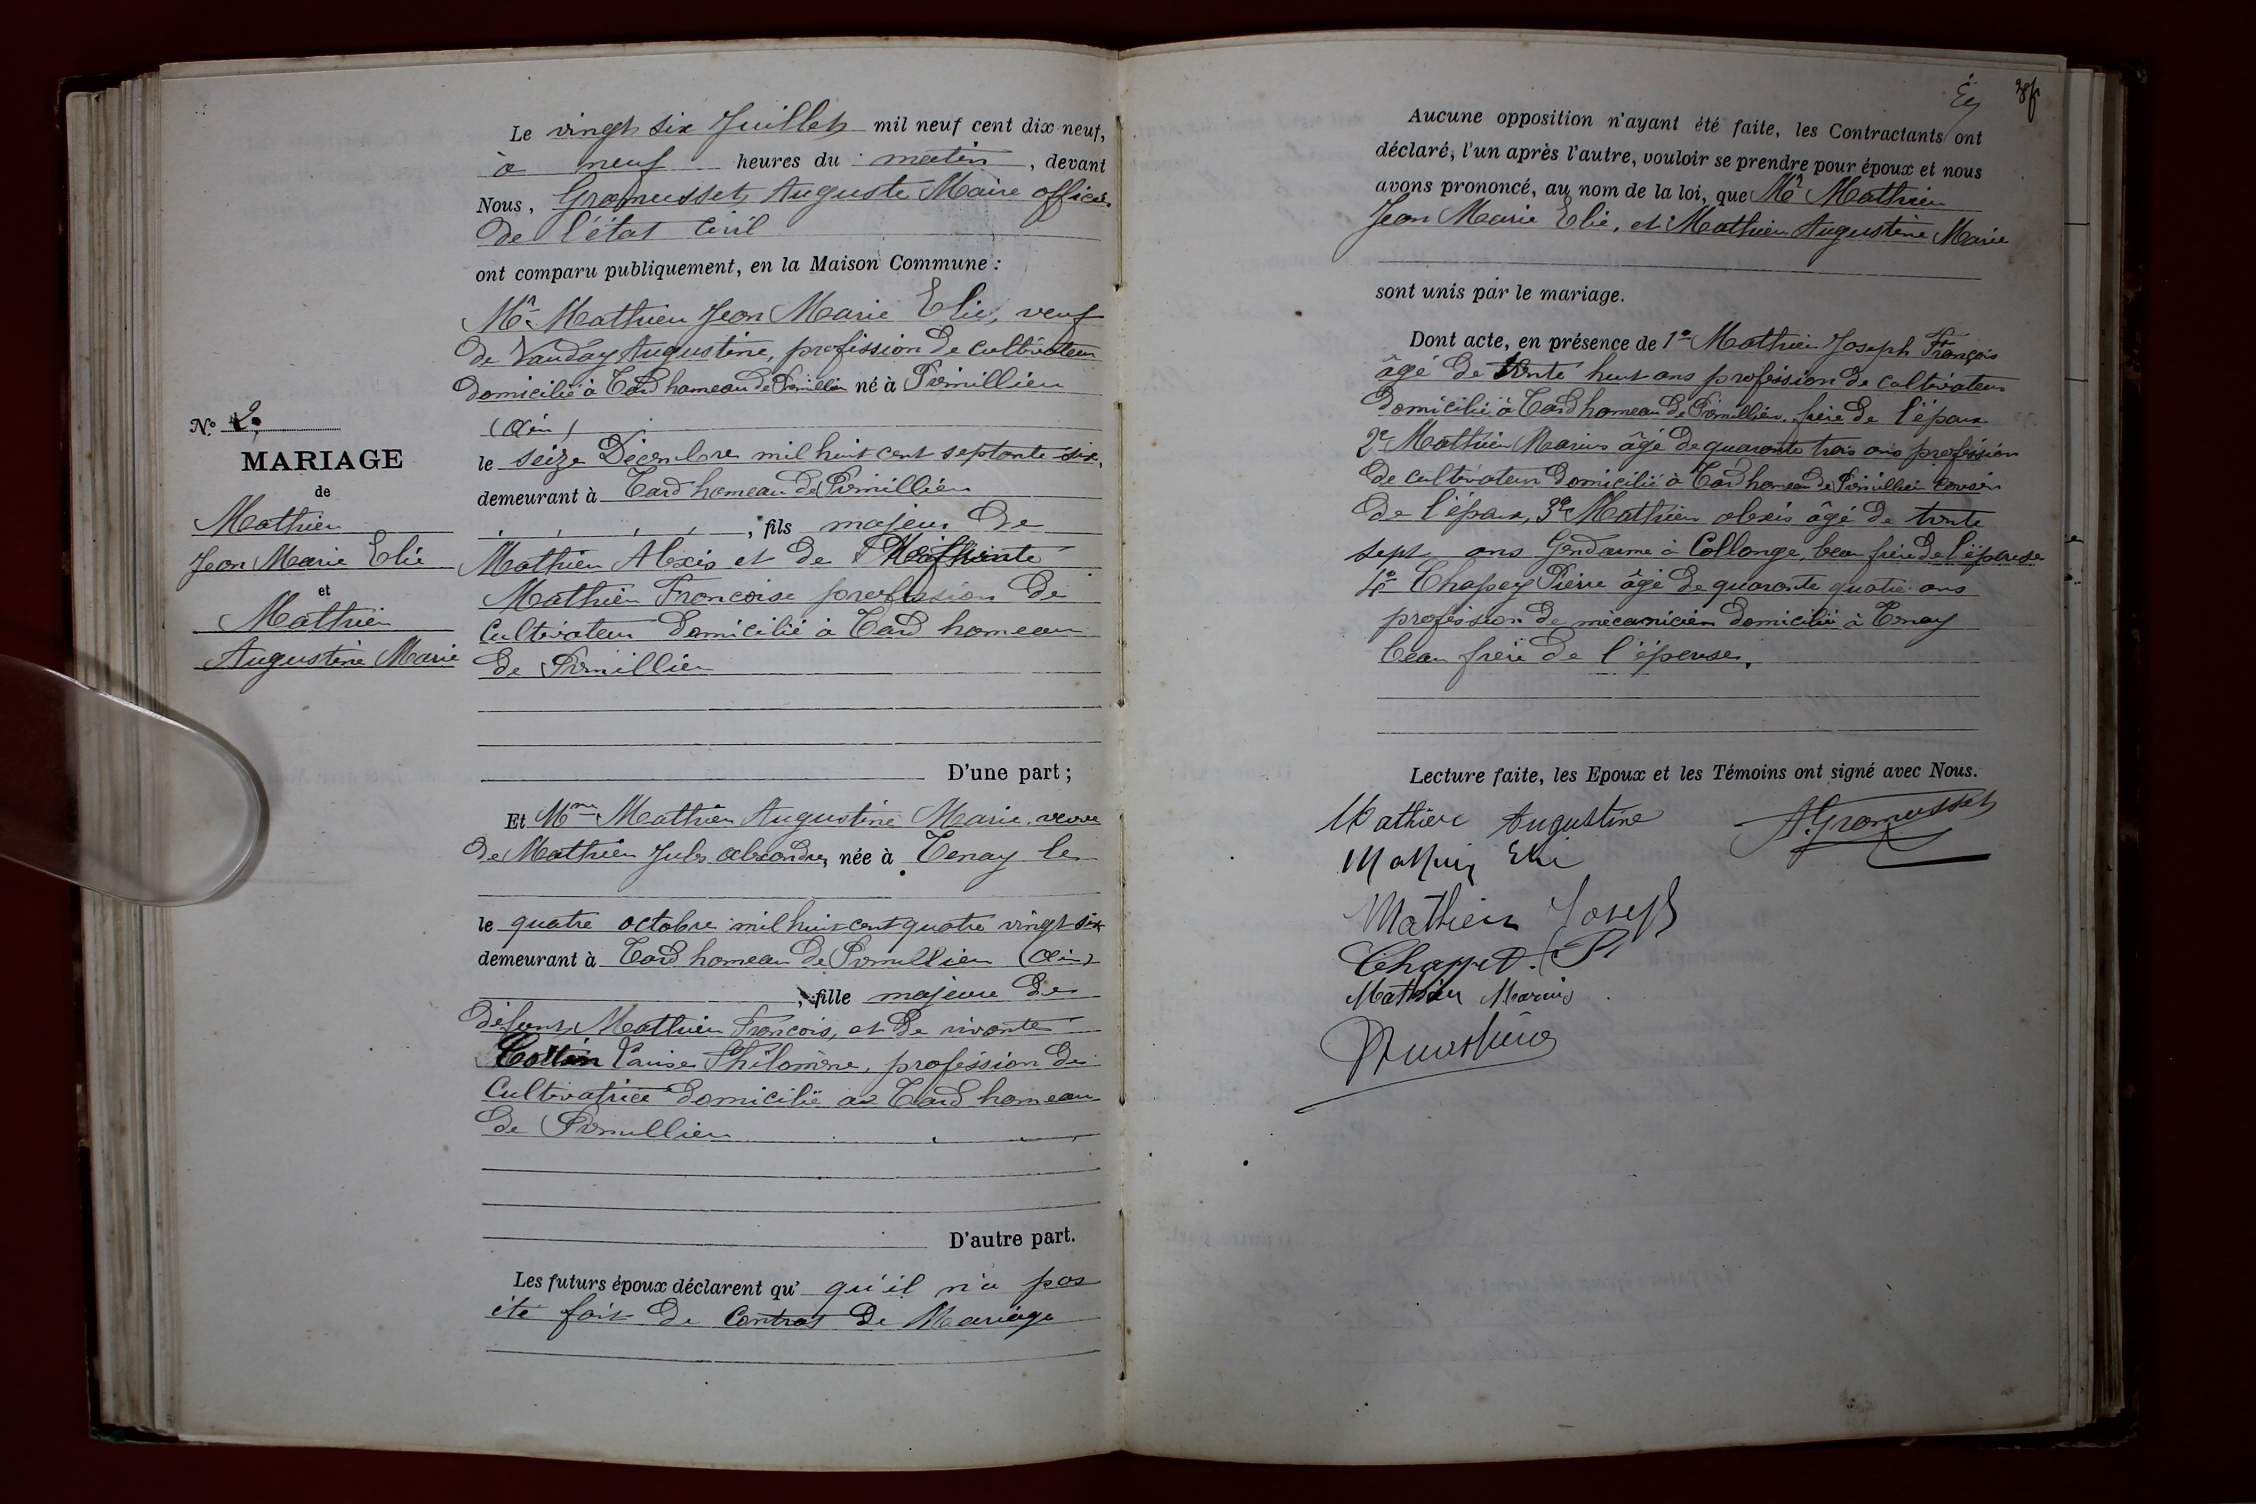 Le vingt six Juillet mil neuf cent dix neuf,
à neuf heures du matin, devant
Nous, Gramusset Auguste Maire officier
de l'état civil
ont comparu publiquement, en la Maison Commune :
Mr Mathieu Jean Marie Elie, veuf
de Vauday Augustine, profission de cultivateur
domicilié à Tard hameau de Prémillieu né à Prémillieu
(Ain)
le seize Décembre mil huit cent septante six,
demeurant à Tard hameau de Prémillieu
, fils majeur de
Mathieu Alexis et de
Mathieu Francoise profession de
Cultivateur domicilié à Tard hameau
de Prémillieu
D'une part ;
Et Mme Mathieu Augustine Marie, veuve
de Mathieu Jules alexandre, née à Tenay le
le quatre octobre mil huit cent quatre vingt six
demeurant à Tard hameau de Prémillieu (Ain)
, fille majeure de
défunt Mathieu Francois, et de vivante
Cottin Louise Philomène, profession de
Cultivatrice domicilié à Tard hameau
de Prémillieu
D'autre part.
Les futurs époux déclarent qu' qu'il n'a pas
été fait de Contrat de Mariage
N.º 2.
MARIAGE
de
Mathieu
Jean Marie Elie
et
Mathieu
Augustine Marie
Aucune opposition n'ayant été faite, les Contractants ont
déclaré, l'un après l'autre, vouloir se prendre pour époux et nous
avons prononcé, au nom de la loi, que Mr Mathieu
Jean Marie Elie, et Mathieu Augustine Marie
sont unis par le mariage.
Dont acte, en présence de 1º Mathieu Joseph François
âgé de trente huit ans profession de cultivateur
domicilié à Tard hameau de Prémillieu, frère de l'époux
2º Mathieu Marius âgé de quarante trois ans profession
de cultivateur domicilié à Tard hameau de Prémillieu cousin
de l'époux, 3º Mathieu alexis âgé de trente
sept ans Gendarme à Collonge, beau frère de l'épouse
4º Chapey Pierre âgé de quarante quatre ans
profession de mécanicien domicilié à Tenay
beau frère de l'épouse.
Lecture faite, les Epoux et les Témoins ont signé avec Nous.
Mathieu Augustine A. Gramusset
Mathieu Elie
Mathieu Joseph
Chappet. P
Mathieu Marius